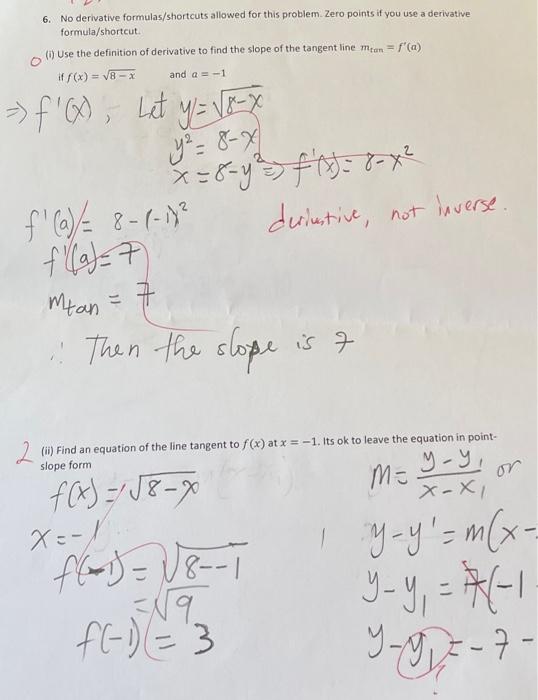 6. No derivative formulas/shortcuts allowed for this problem. Zero points if you use a derivative
formula/shortcut.
0 (i) Use the definition of derivative to find the slope of the tangent line m_tan = f'(a)
if f(x) = √8 − x and a = −1
⇒ f'(x), Let y = √8-x
y² = 8-x
x = 8-y² ⇒ f'(x) = 8-x²
f'(a) = 8-(-1)²
derivative, not inverse.
f'(a) = 7
mtan = 7
∴ Then the slope is 7
2 (ii) Find an equation of the line tangent to f(x) at x = −1. Its ok to leave the equation in point-
slope form
f(x) = √8-x
m = y-y₁ / x-x₁ or
x = -1
y-y' = m(x-
f(-1) = √8--1
y-y₁ = 7(-1
= √9
f(-1) = 3
y-y₁ = -7-
?